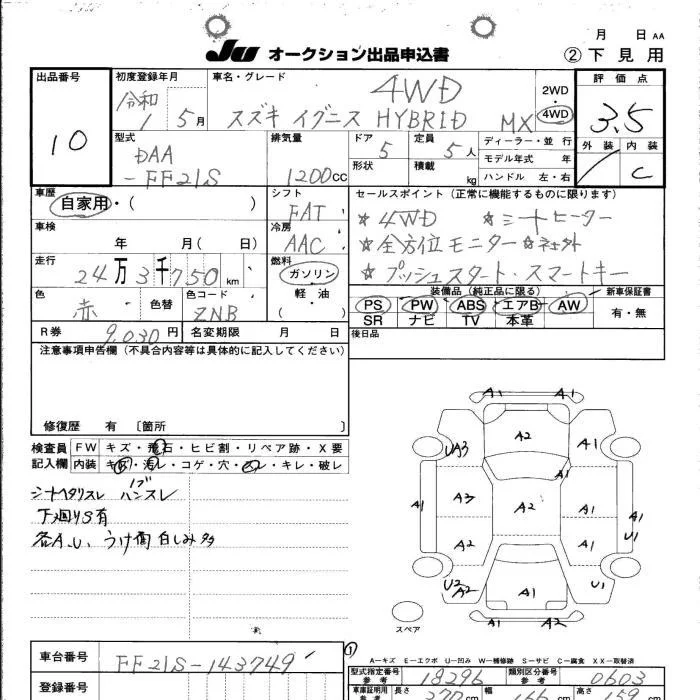 月 日 AA
JU オークション出品申込書
② 下見用
出品番号
10
初度登録年月
令和
1 5月
車名・グレード
4WD
スズキ イグニス HYBRID MX
2WD
・
4WD
評価点
3.5
外装 内装
C
型式
DAA
-FF21S
排気量
1200cc
ドア
5
定員
5人
形状
積載
kg
ディーラー・並行
モデル年式 年
ハンドル 左・右
車歴
自家用・( )
シフト
FAT
セールスポイント(正常に機能するものに限ります)
☆4WD ☆シートヒーター
☆全方位モニター
☆プッシュスタート・スマートキー
車検
年 月( 日)
冷房
AAC
走行
24万3千750km
燃料
ガソリン
軽油
( )
色
赤
色替
色コード
ZNB
装備品(純正品に限る)
PS PW ABS エアB AW
SR ナビ TV 本革
新車保証書
有・無
R券 9,030円
名変期限 月 日
後日品
注意事項申告欄(不具合内容等は具体的に記入してください)
修復歴 有 〔箇所 〕
検査員
記入欄
FW キズ・飛石・ヒビ割・リペア跡・X要
内装 キズ・汚レ・コゲ・穴・スレ・キレ・破レ
下廻りS有
各A.U.
A1 A1
A2
UA3 A1
A1 A3 A2 A1 A1
A2 A1 U1
U2 A2 A1 U1
A1 A2
スペア
①
A－キズ E－エクボ U－凹み W－補修跡 S－サビ C－腐食 XX－取替済
車台番号
FF21S-143749
登録番号
型式指定番号
参考
18296
類別区分番号
参考
0603
車庫証明用
参考
長さ
370cm
幅
高さ